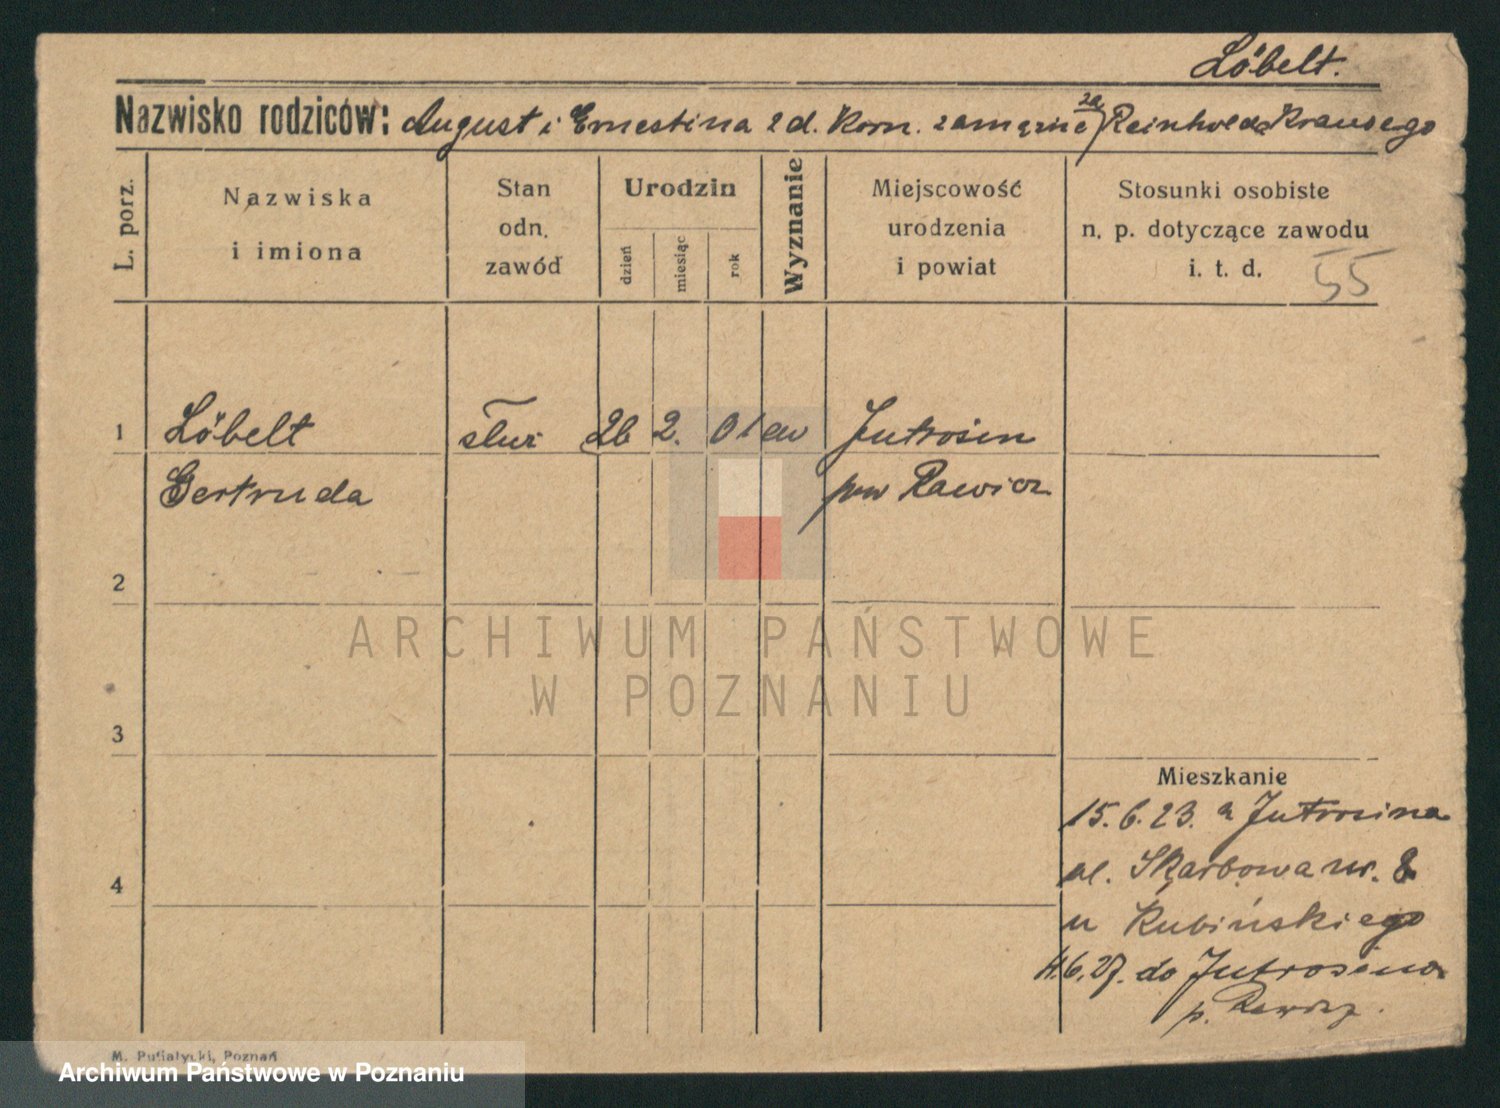 Löbelt.
Nazwisko rodziców: August i Ernestina z d. Korn. zamężne za Reinholda Krausego
L. porz.
Nazwiska
i imiona
Stan
odn.
zawód
Urodzin
dzień
miesiąc
rok
Wyznanie
Miejscowość
urodzenia
i powiat
Stosunki osobiste
n. p. dotyczące zawodu
i. t. d.
55
1 Löbelt służ 26 2. 01 ew Jutrosin
Gertruda pow Rawicz
2
ARCHIWUM PAŃSTWOWE
W POZNANIU
3
Mieszkanie
15.6.23. z Jutrosina
4
ul. Skarbowa nr. 8
u Rubińskiego
4.6.27. do Jutrosina
p. Rawicz.
M. Putiatycki, Poznań
Archiwum Państwowe w Poznaniu